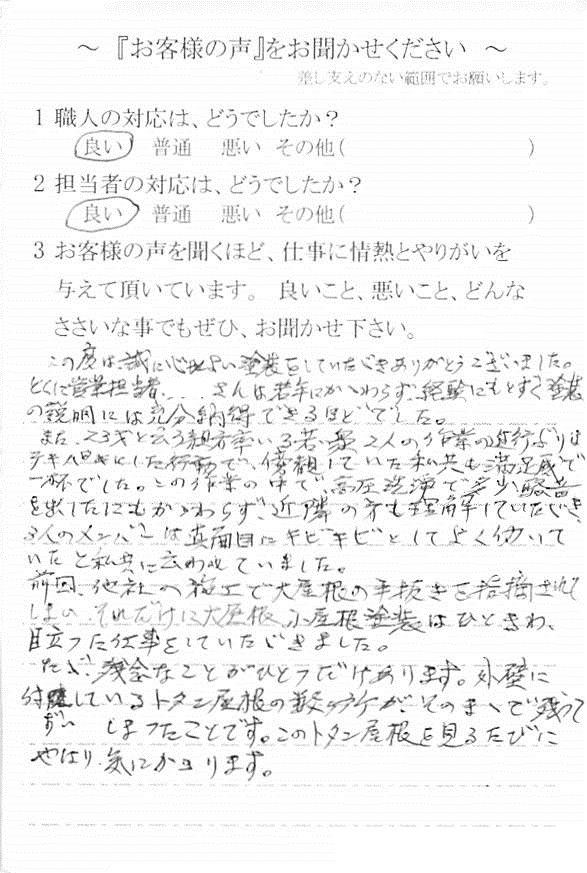 ～『お客様の声』をお聞かせください ～
差し支えのない範囲でお願いします。
1 職人の対応は、どうでしたか？
良い 普通 悪い その他( )
2 担当者の対応は、どうでしたか？
良い 普通 悪い その他( )
3 お客様の声を聞くほど、仕事に情熱とやりがいを
与えて頂いています。 良いこと、悪いこと、どんな
ささいな事でもぜひ、お聞かせ下さい。
この度は誠に心地よい塗装をしていただきありがとうございました。
とくに営業担当者 さんは若年にかゝわらず、経験にもとずく塗装
の説明には充分納得できるほどでした。
また、23才と云う親方率いる若い衆2人の作業の進行ぶりは
テキパキとした行動で、傍観していた私共も満足感で
一杯でした。この作業の中で、高圧洗浄で多少騒音
を出したにもかゝわらず、近隣の方も理解していただき
3人のメンバーは真面目にキビキビとしてよく働いて
いたと私共に云われていました。
前回、他社の施工で大屋根の手抜きを指摘されて
しまい、それだけに大屋根、小屋根塗装はひときわ、
目立つた仕事をしていただきました。
たゞ、残念なことがひとつだけあります。外壁に
付随しているトタン屋根の数ヶ所が、そのまゝで残って
ずい しまつたことです。このトタン屋根を見るたびに
やはり、気にかゝります。